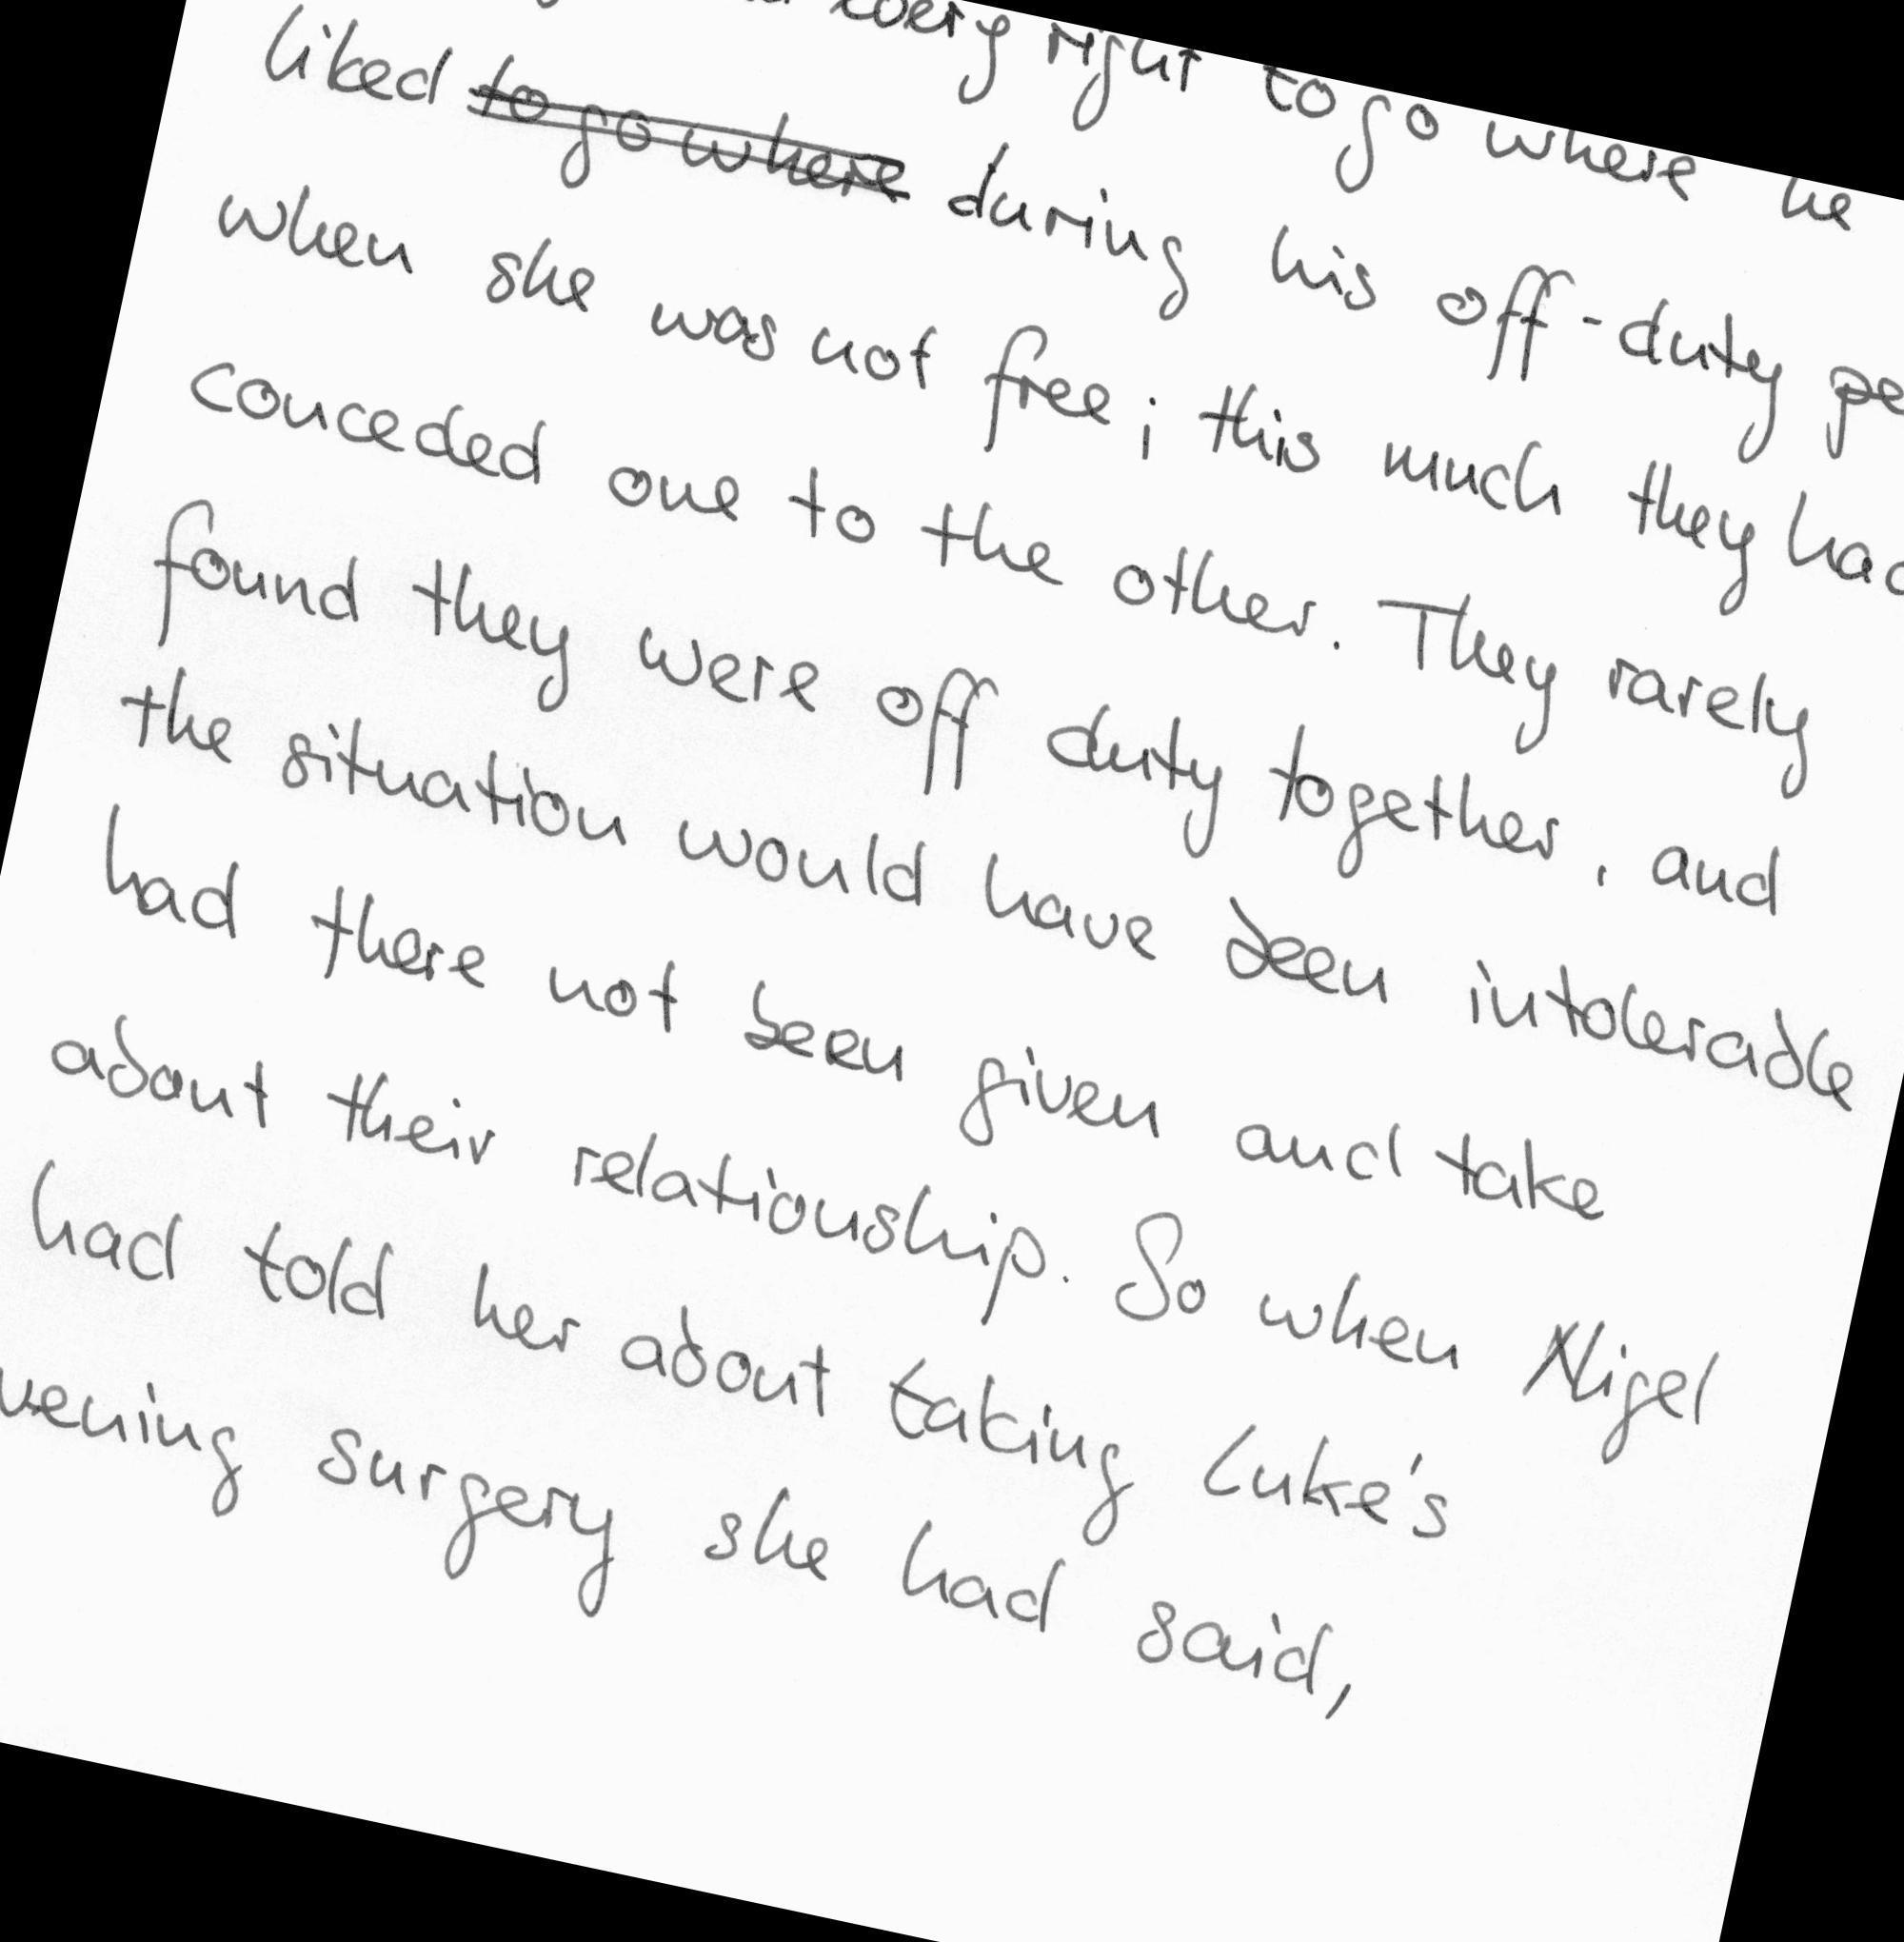 every right to go where he
liked to go where during his off-duty
when she was not free; this much they had
conceded one to the other. They rarely
found they were off duty together, and
the situation would have been intolerable
had there not been given and take
about their relationship. So when Nigel
had told her about taking Luke's
vening surgery she had said,